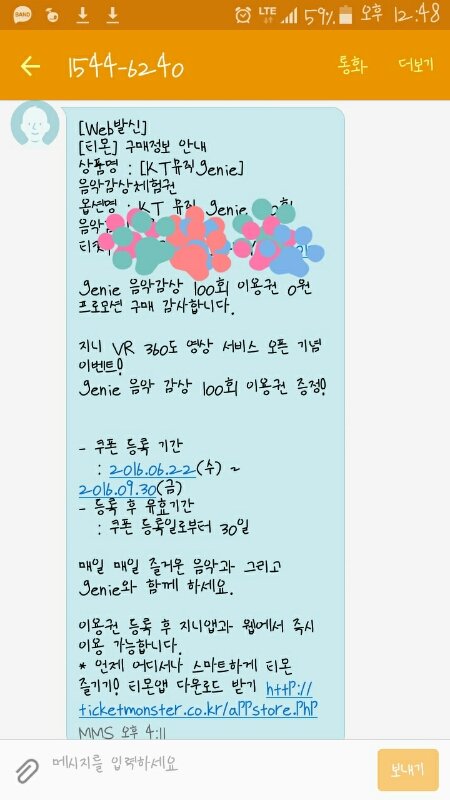 BAND LTE 59% 오후 12:48
1544-6240 통화 더보기
[Web발신]
[티몬] 구매정보 안내
상품명 : [KT뮤직genie]
음악감상체험권
옵션명 : KT 뮤직 genie
음악감
티켓
genie 음악감상 100회 이용권 0원
프로모션 구매 감사합니다.
지니 VR 360도 영상 서비스 오픈 기념
이벤트!
genie 음악 감상 100회 이용권 증정!
- 쿠폰 등록 기간
: 2016.06.22(수) ~
2016.09.30(금)
- 등록 후 유효기간
: 쿠폰 등록일로부터 30일
매일 매일 즐거운 음악과 그리고
genie와 함께 하세요.
이용권 등록 후 지니앱과 웹에서 즉시
이용 가능합니다.
* 언제 어디서나 스마트하게 티몬
즐기기! 티몬앱 다운로드 받기 http://
ticketmonster.co.kr/appstore.php
MMS 오후 4:11
메시지를 입력하세요 보내기